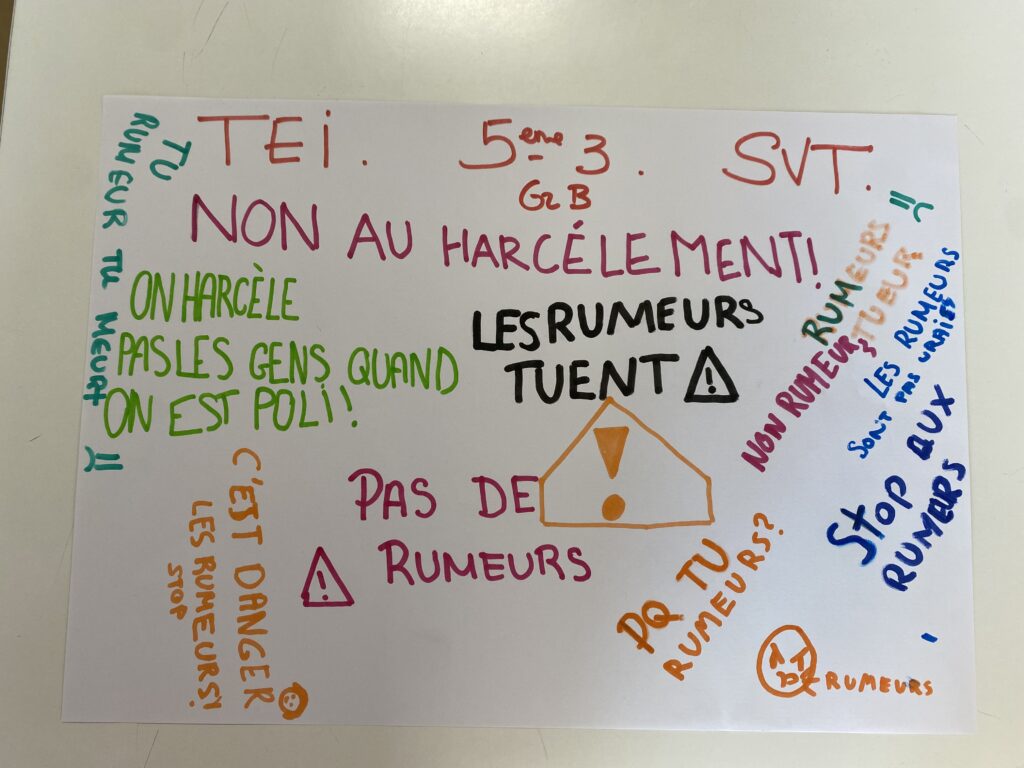 TEI. 5eme 3. SVT.
G2 B
NON AU HARCÉLEMENT!
TU
RUMEUR TU MEURT
ON HARCÈLE
PAS LES GENS QUAND
ON EST POLI!
LES RUMEURS
TUENT
RUMEURS
TUEUR
NON RUMEURS
LES RUMEURS
SONT PAS VRAIES
STOP AUX
RUMEURS
PAS DE
RUMEURS
C'EST DANGER
LES RUMEURS!
STOP
PQ TU
RUMEURS?
RUMEURS